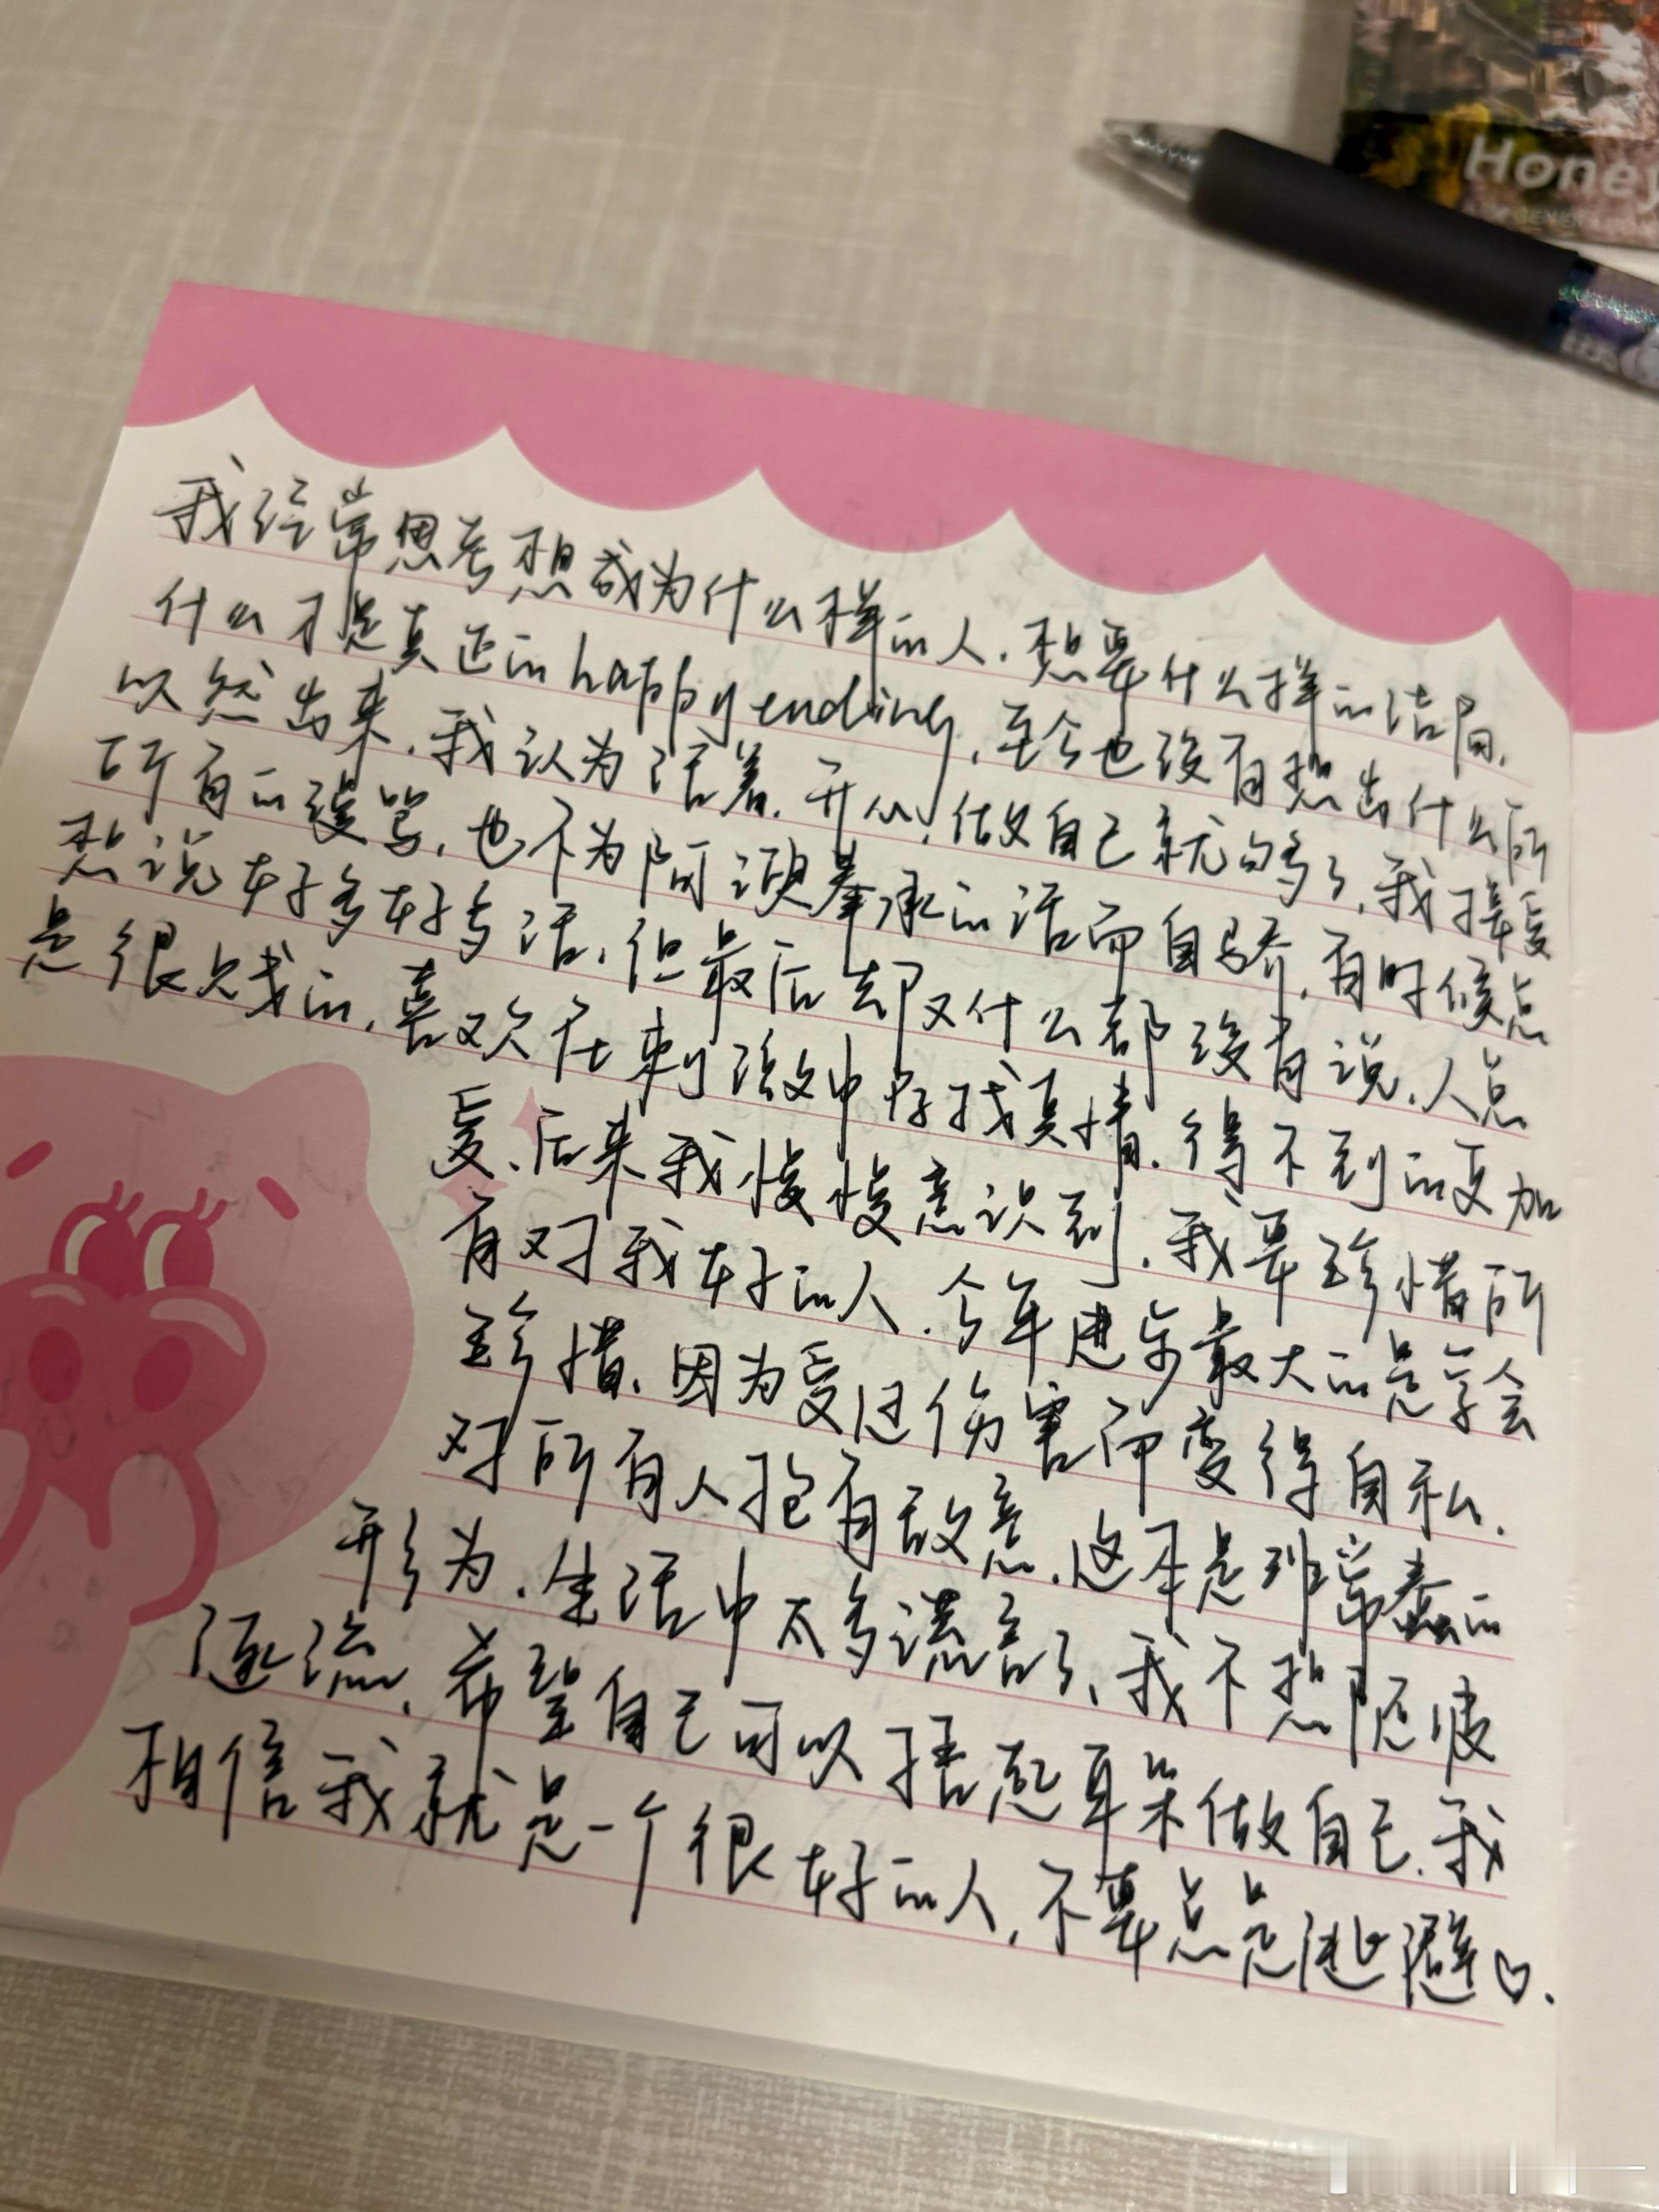 Honey
我经常思考想成为什么样的人.想要什么样的结局.
什么才是真正的happy ending,至今也没有想出什么所
以然出来.我认为活着.开心.做自己就够了.我接受
所有的谩骂.也不为阿谀奉承的话而自骄.有时候总
想说好多好多话.但最后却又什么都没有说.人总
是很贱的.喜欢在刺激中寻找真情.得不到的更加
爱.后来我慢慢意识到.我要珍惜所
有对我好的人.今年进步最大的是学会
珍惜.因为受过伤害而变得自私.
对所有人抱有敌意.这本是非常蠢的
行为.生活中太多谎言了.我不想随波
逐流.希望自己可以捂起耳朵做自己.我
相信我就是一个很好的人.不要总是逃避♡.